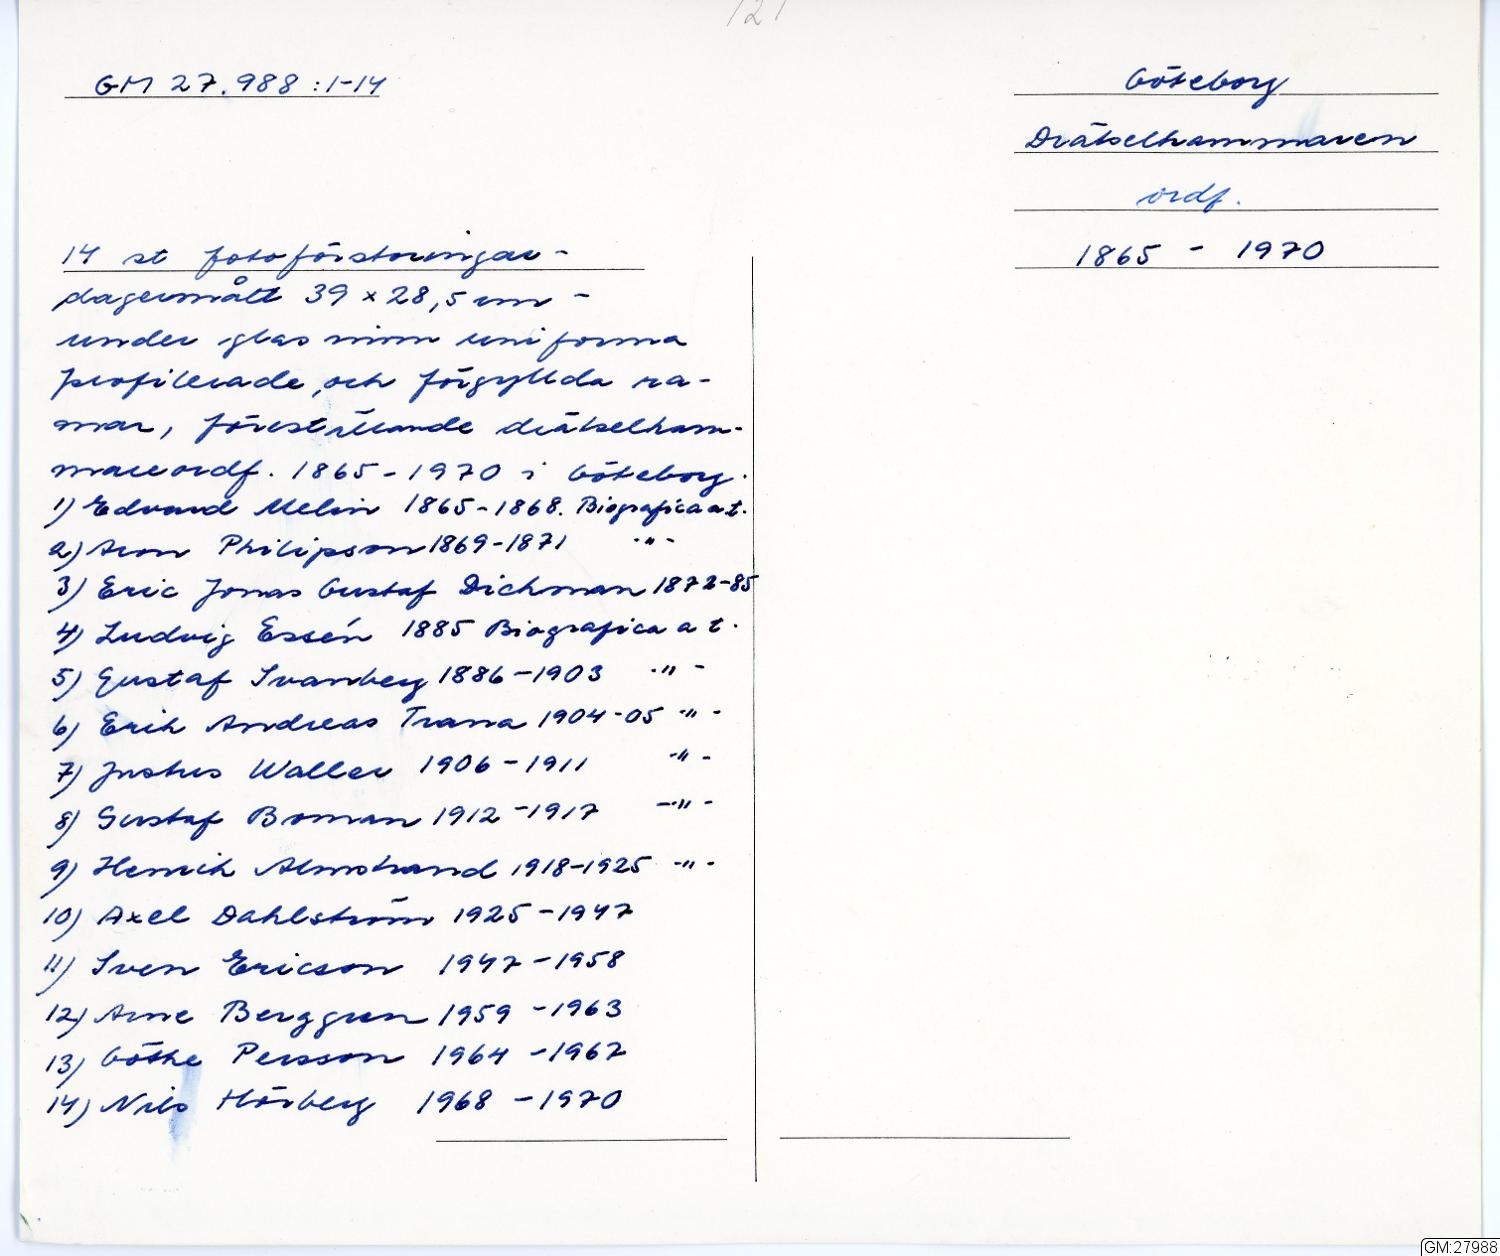 121
GM 27.988 :1-14
Göteborg
Drätselkammaren
ordf.
1865 - 1970
14 st fotoförstoringar -
dagermått 39 x 28,5 cm -
under glas inom uniforma
profilerade, och förgyllda ra-
mar, föreställande drätselkam-
mareordf. 1865-1970 i Göteborg.
1) Edvard Melin 1865-1868. Biografica a t.
2) Aron Philipson 1869-1871 -"-
3) Eric Jonas Gustaf Dichman 1872-85
4) Ludvig Essén 1885 Biografica a t.
5) Gustaf Svanberg 1886-1903 -"-
6) Erik Andreas Trana 1904-05 -"-
7) Justus Waller 1906-1911 -"-
8) Gustaf Boman 1912-1917 -"-
9) Henrik Almstrand 1918-1925 -"-
10) Axel Dahlström 1925-1947
11) Sven Ericson 1947-1958
12) Arne Berggren 1959-1963
13) Göthe Persson 1964-1967
14) Nils Hörberg 1968-1970
GM:27988